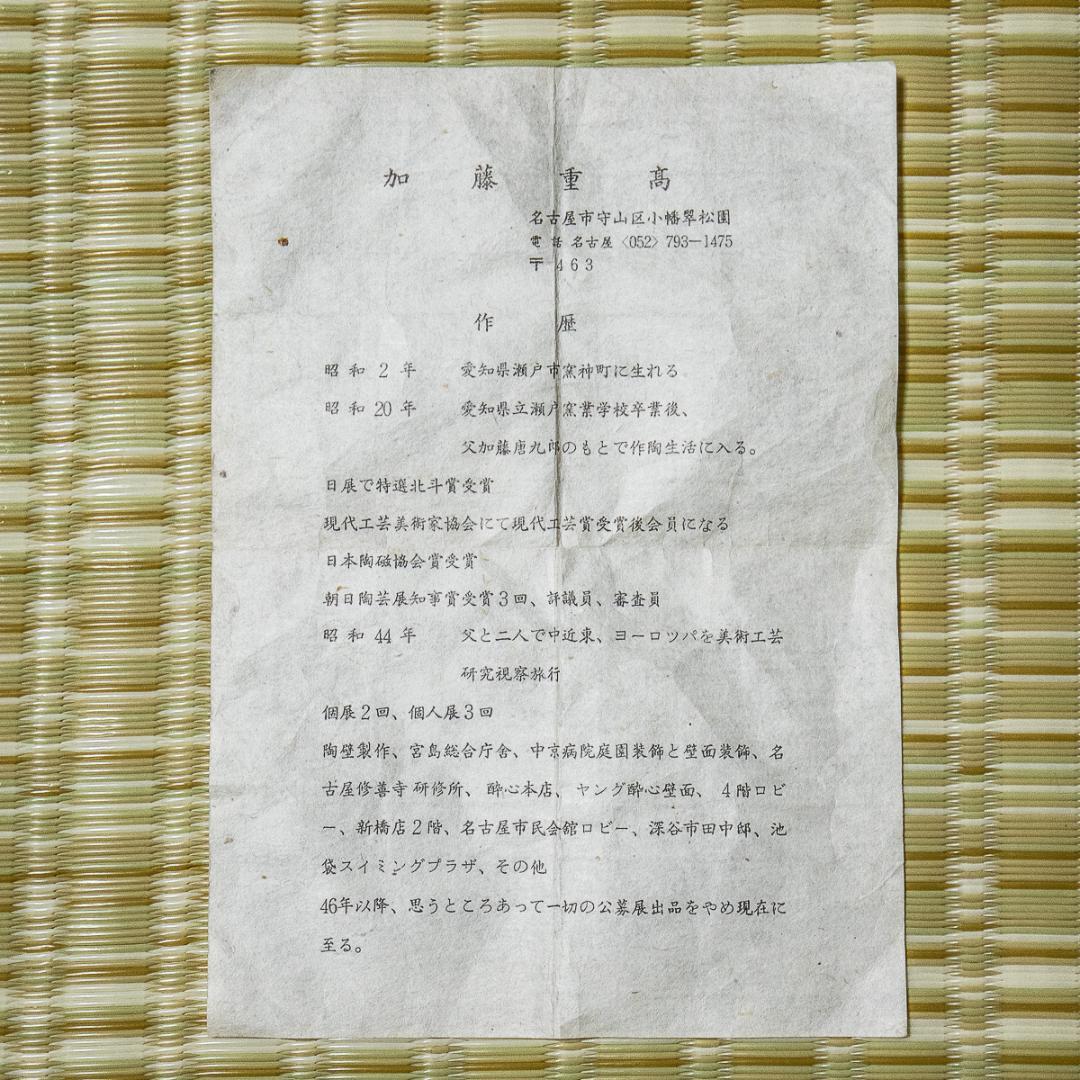 加藤重髙
名古屋市守山区小幡翠松園
電話 名古屋〈052〉793―1475
〒463
作歴
昭和2年 愛知県瀬戸市窯神町に生れる
昭和20年 愛知県立瀬戸窯業学校卒業後、
父加藤唐九郎のもとで作陶生活に入る。
日展で特選北斗賞受賞
現代工芸美術家協会にて現代工芸賞受賞後会員になる
日本陶磁協会賞受賞
朝日陶芸展知事賞受賞3回、評議員、審査員
昭和44年 父と二人で中近東、ヨーロツパを美術工芸
研究視察旅行
個展2回、個人展3回
陶壁製作、宮島総合庁舎、中京病院庭園装飾と壁面装飾、名
古屋修善寺研修所、酔心本店、ヤング酔心壁面、4階ロビ
ー、新橋店2階、名古屋市民会館ロビー、深谷市田中邸、池
袋スイミングプラザ、その他
46年以降、思うところあって一切の公募展出品をやめ現在に
至る。